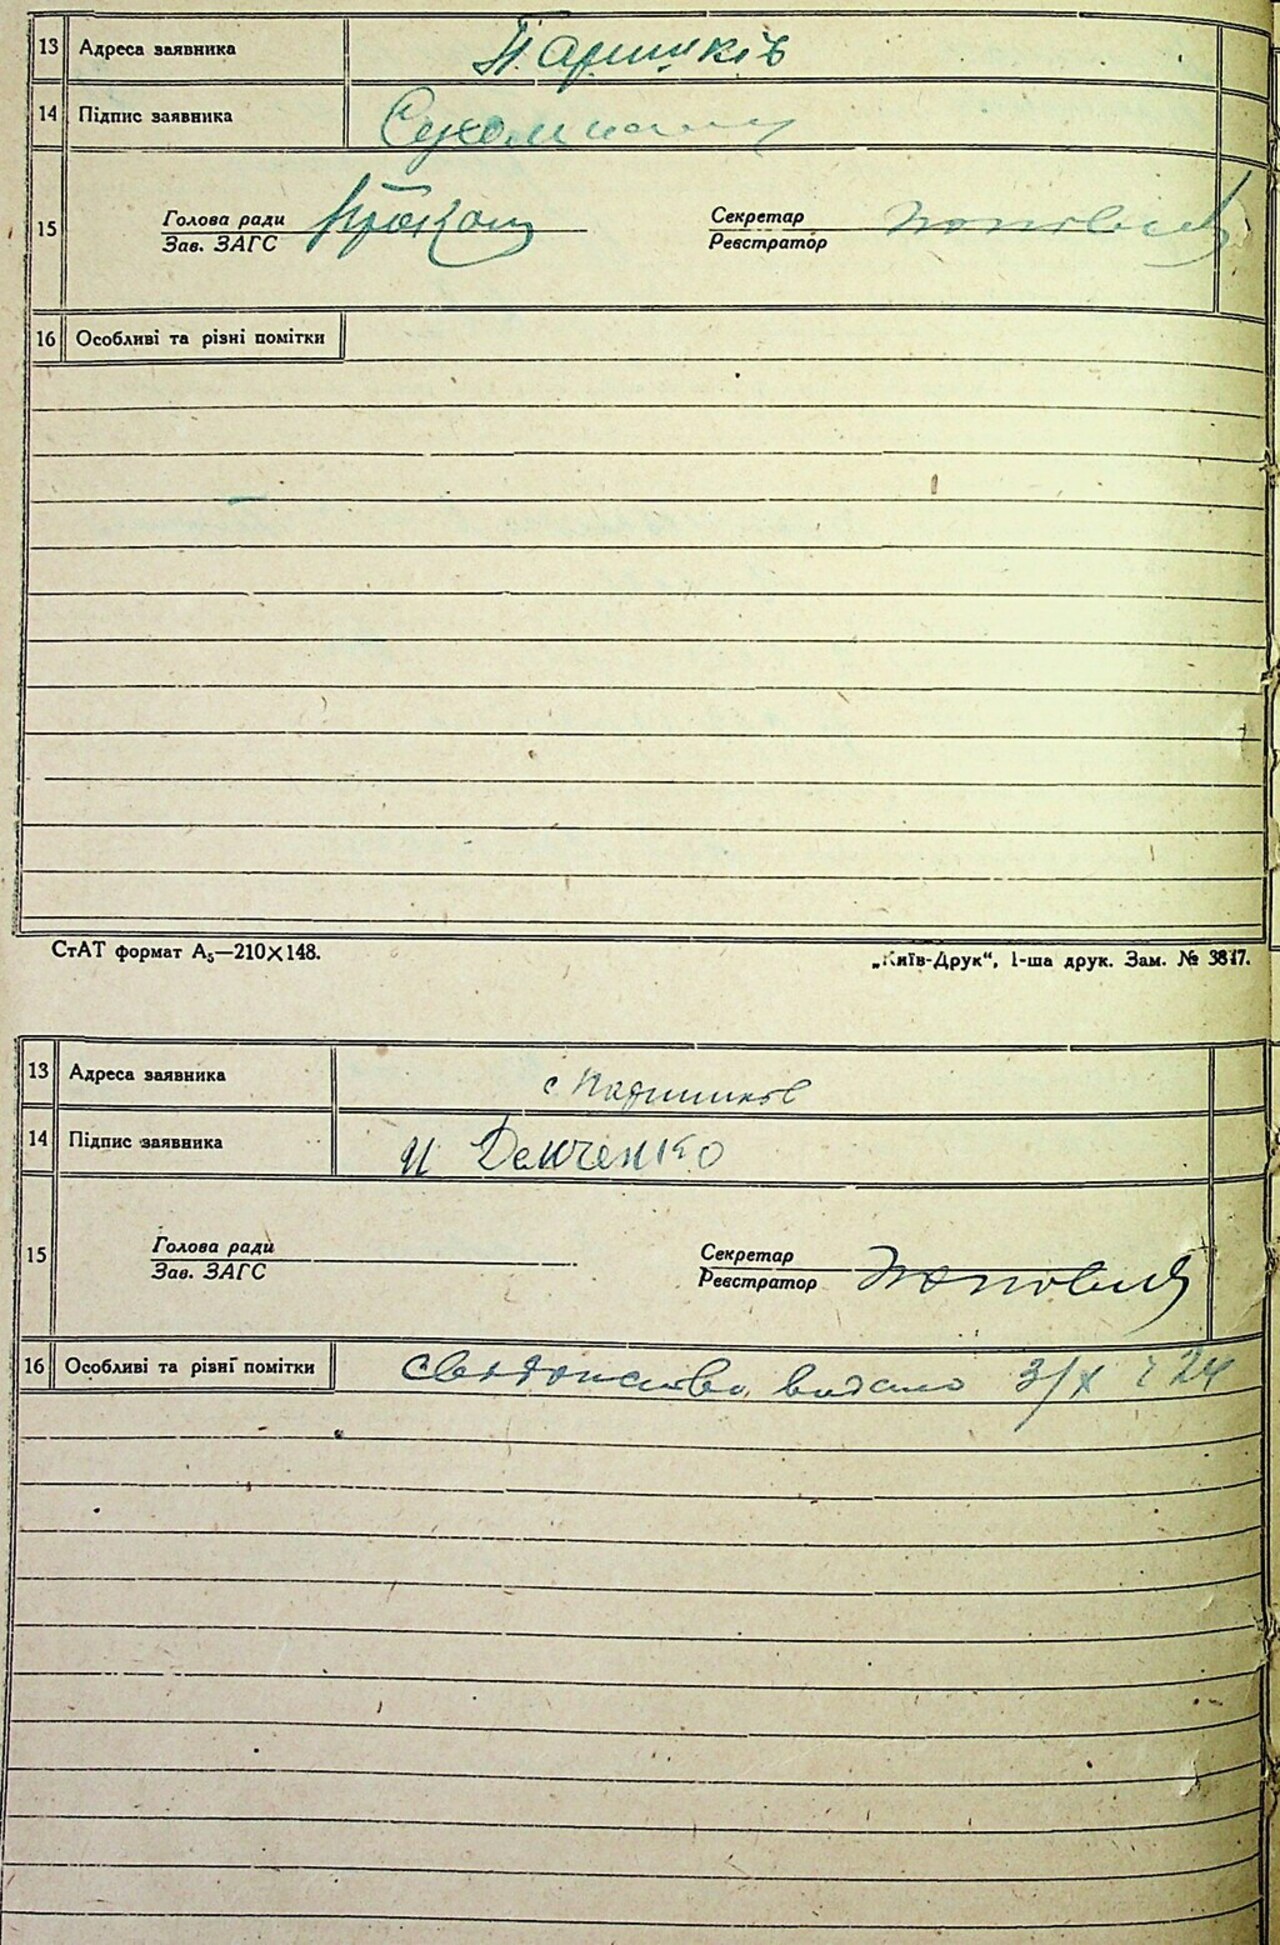 13 Адреса заявника Паришків
14 Підпис заявника
15 Голова ради Секретар
Зав. ЗАГС Реєстратор
16 Особливі та різні помітки
СтАТ формат А₅—210×148. „Київ-Друк“, 1-ша друк. Зам. № 3817.
13 Адреса заявника с Паришков
14 Підпис заявника И Демченко
15 Голова ради Секретар
Зав. ЗАГС Реєстратор Попович
16 Особливі та різні помітки видано 3/X